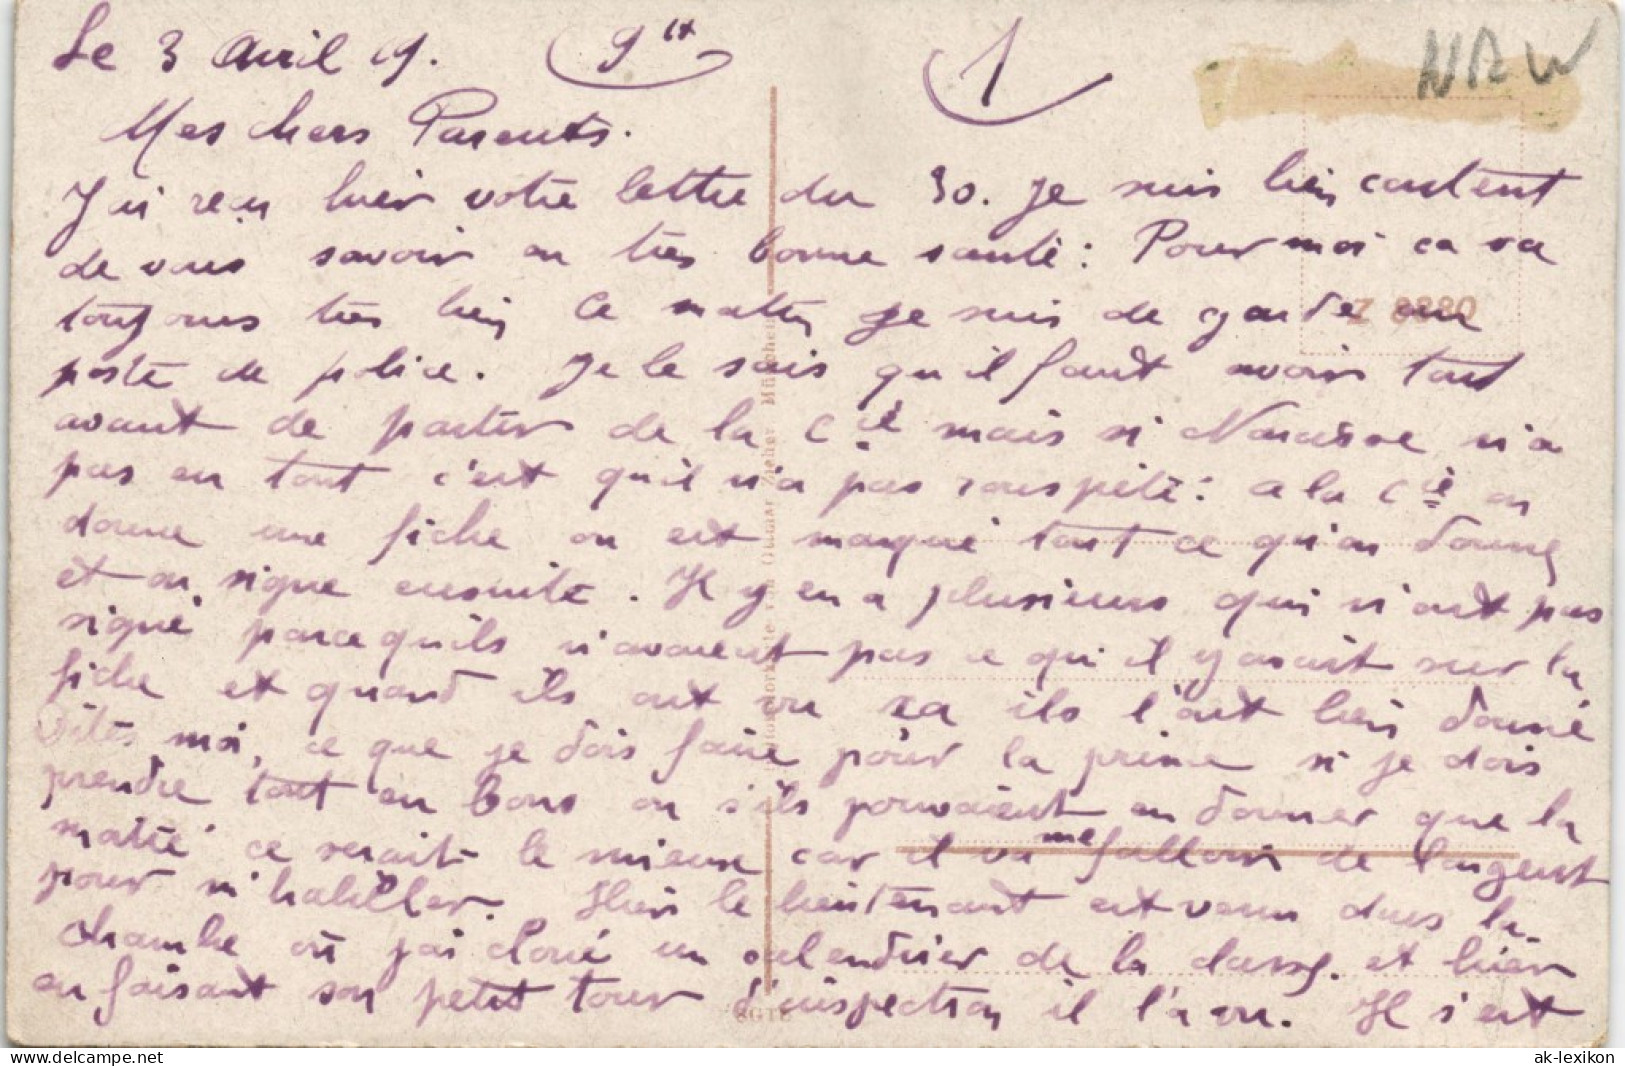 Le 3 Avril 19. 1 NRW
Mes chers Parents.
J'ai reçu hier votre lettre du 30. Je suis bien content
de vous savoir en très bonne santé: Pour moi ca va
toujours très bien Ce matin je suis de garde au
poste de police. Je le sais qu'il faut avoir tout
avant de partir de la Cie mais si n'a
pas eu tout c'est qu'il n'a pas rouspété: a la Cie on
donne une fiche ou est marqué tout ce qu'on donne
et on signe ensuite. Il y en a plusieurs qui n'ont pas
signé parce qu'ils n'avaient pas ce qu'il y avait sur la
fiche et quand ils ont vu ca ils l'ont bien donné
Dites moi, ce que je dois faire pour la prime si je dois
prendre tout en bons ou s'ils pouvaient en donner que la
moitié ce serait le mieux car il va me falloir de l'argent
pour m'habiller. Hier le lieutenant est venu dans la
chambre où j'ai cloué un calendrier de la classe. et hier
en faisant son petit tour d'inspection il l'a vu. Il s'est
Z 8880
ak-lexikon